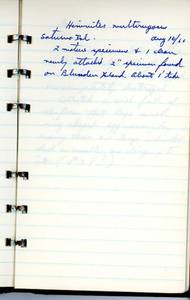 Hinnites multirugosus
Saturna Isl. Aug 14/60
2 mature specimens & 1 clean
newly attached 2" specimen found
on Blunden Island about 1' tide